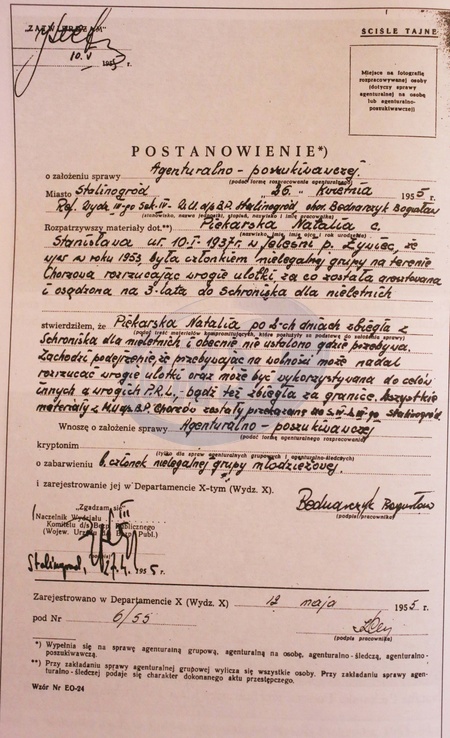 „ZATWIERDZAM"
10.V 1955 r.
ŚCIŚLE TAJNE
Miejsce na fotografię
rozpracowywanej osoby
(dotyczy sprawy
agenturalnej na osobę
lub agenturalno-
poszukiwawczej)
POSTANOWIENIE*)
o założeniu sprawy Agenturalno - poszukiwawczej
(podać formę rozpracowania agenturalnego)
Miasto Stalinogród 26 „ Kwietnia 1955 r.
Ref. Wydz. III-go Sek. IV- W.U. ds B.P. Stalinogród chor. Bednarczyk Bogusław
(stanowisko, nazwa jednostki, stopień, nazwisko i imię pracownika)
Rozpatrzywszy materiały dot.**) Piekarska Natalia c.
(nazwisko, imię, imię ojca i rok urodzenia)
Stanisława ur. 10-I-1937r. w Jeleśni p. Żywiec, że
w/w w roku 1953 była członkiem nielegalnej grupy na terenie
Chorzowa rozrzucając wrogie ulotki, za co została aresztowana
i osądzona na 3. lata do Schroniska dla nieletnich
stwierdziłem, że Piekarska Natalia po 2-ch dniach zbiegła z
(podać treść materiałów kompromitujących, które posłużyły za podstawę do założenia sprawy)
Schroniska dla nieletnich i obecnie nie ustalono gdzie przebywa.
Zachodzi podejrzenie, że przebywając na wolności może nadal
rozrzucać wrogie ulotki oraz może być wykorzystywana do celów
innych a wrogich P.R.L., bądź też zbiegła za granicę. Wszystkie
materiały z M.U. ds B.P. Chorzów zostały przekazane do Stalinogród
Wnoszę o założenie sprawy Agenturalno - poszukiwawczej
(podać formę agenturalnego rozpracowania)
kryptonim
(tylko dla spraw agenturalnych grupowych i agenturalno-śledczych)
o zabarwieniu b. członek nielegalnej grupy młodzieżowej.
i zarejestrowanie jej w Departamencie X-tym (Wydz. X).
„Zgadzam się"
Naczelnik Wydziału III
Komitetu d/s Bezp. Publicznego
(Wojew. Urzędu ds Bezp. Publ.)
Bednarczyk Bogusław
(podpis pracownika)
Stalinogród, 27.4. 1955 r.
Zarejestrowano w Departamencie X (Wydz. X) 12 maja 1955 r.
pod Nr 6/55
(podpis pracownika)
*) Wypełnia się na sprawę agenturalną grupową, agenturalną na osobę, agenturalno-śledczą, agenturalno-
poszukiwawczą.
**) Przy zakładaniu sprawy agenturalnej grupowej wylicza się wszystkie osoby. Przy zakładaniu sprawy agen-
turalno-śledczej podaje się charakter dokonanego aktu przestępczego.
Wzór Nr EO-24